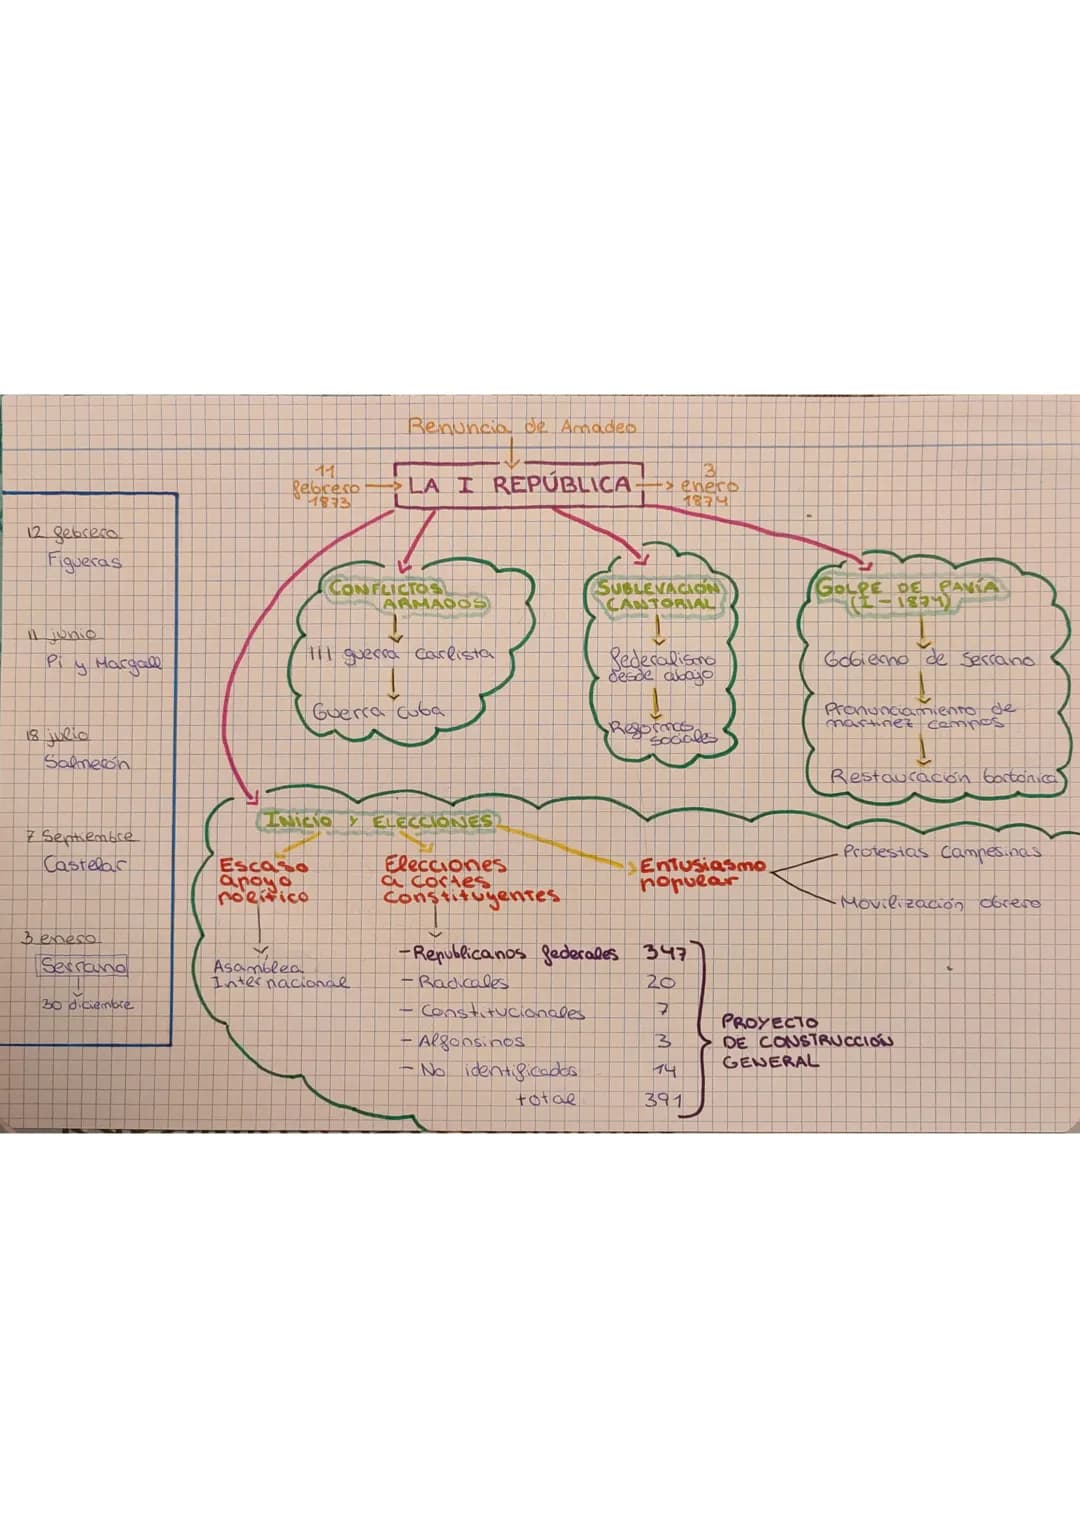 Renuncia de Amadeo
11
febrero
1873
LA I REPÚBLICA
3
enero
1874
12 febrero
Figueras
11 junio
Pi y Margall
18 julio
Salmerón
7 Septiembre
Castelar
3 enero
Serrano
30 diciembre
CONFLICTOS
ARMADOS
III guerra carlista
Guerra cuba
SUBLEVACIÓN
CANTORIAL
Federalismo
desde abajo
Reformas
sociales
GOLPE DE PAVÍA
(I-1874)
Gobierno de Serrano
Pronunciamiento de
martinez campos
Restauración borbónica
INICIO Y ELECCIONES
Escaso
apoyo
político
Asamblea
Internacional
Elecciones
a cortes
constituyentes
-Republicanos federales 347
- Radicales 20
- Constitucionales 7
- Alfonsinos 3
- No identificados 14
total 391
PROYECTO
DE CONSTRUCCIÓN
GENERAL
Entusiasmo
popular
Protestas Campesinas
Movilización obrero